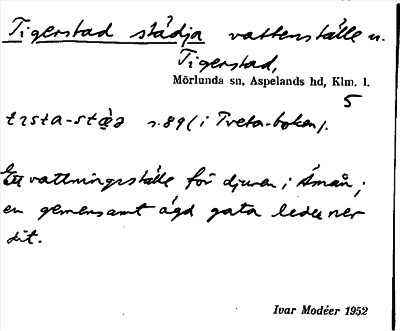 Tigerstad städja vattenställe u.
Tigerstad,
Mörlunda sn, Aspelands hd, Klm. l.
5
s. 89 (i Tveta-boken).
Ett vattningsställe för djuren i Åmån;
en gemensamt ägd gata leder ner
dit.
Ivar Modéer 1952